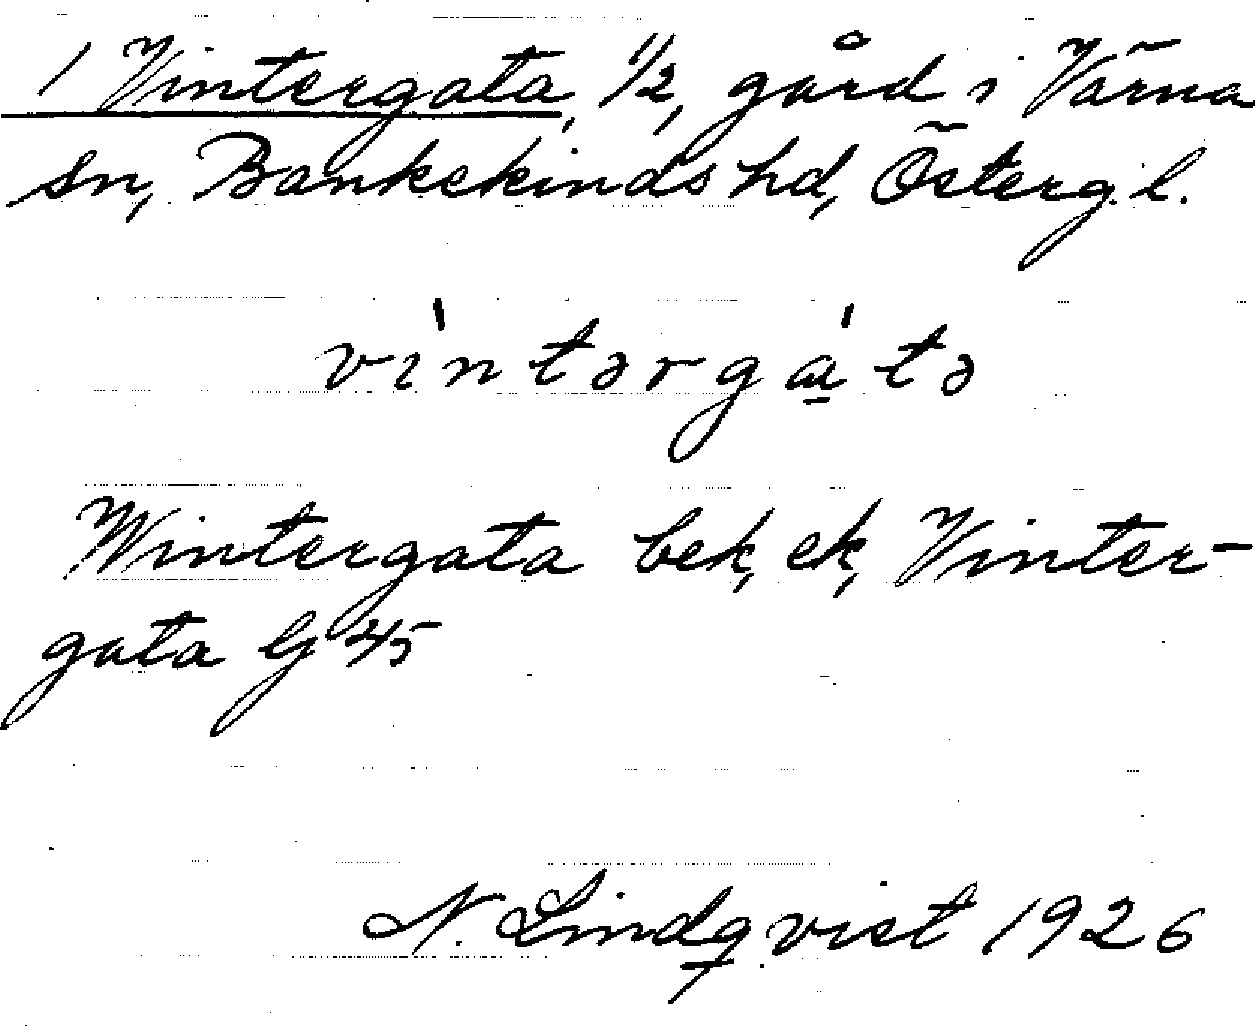 1 Vintergata, 1/2, gård i Värna
sn, Bankekinds hd, Österg. l.
vìntərgá̱tə
Wintergata bek, ek, Vinter-
gata G 45
N. Lindqvist 1926